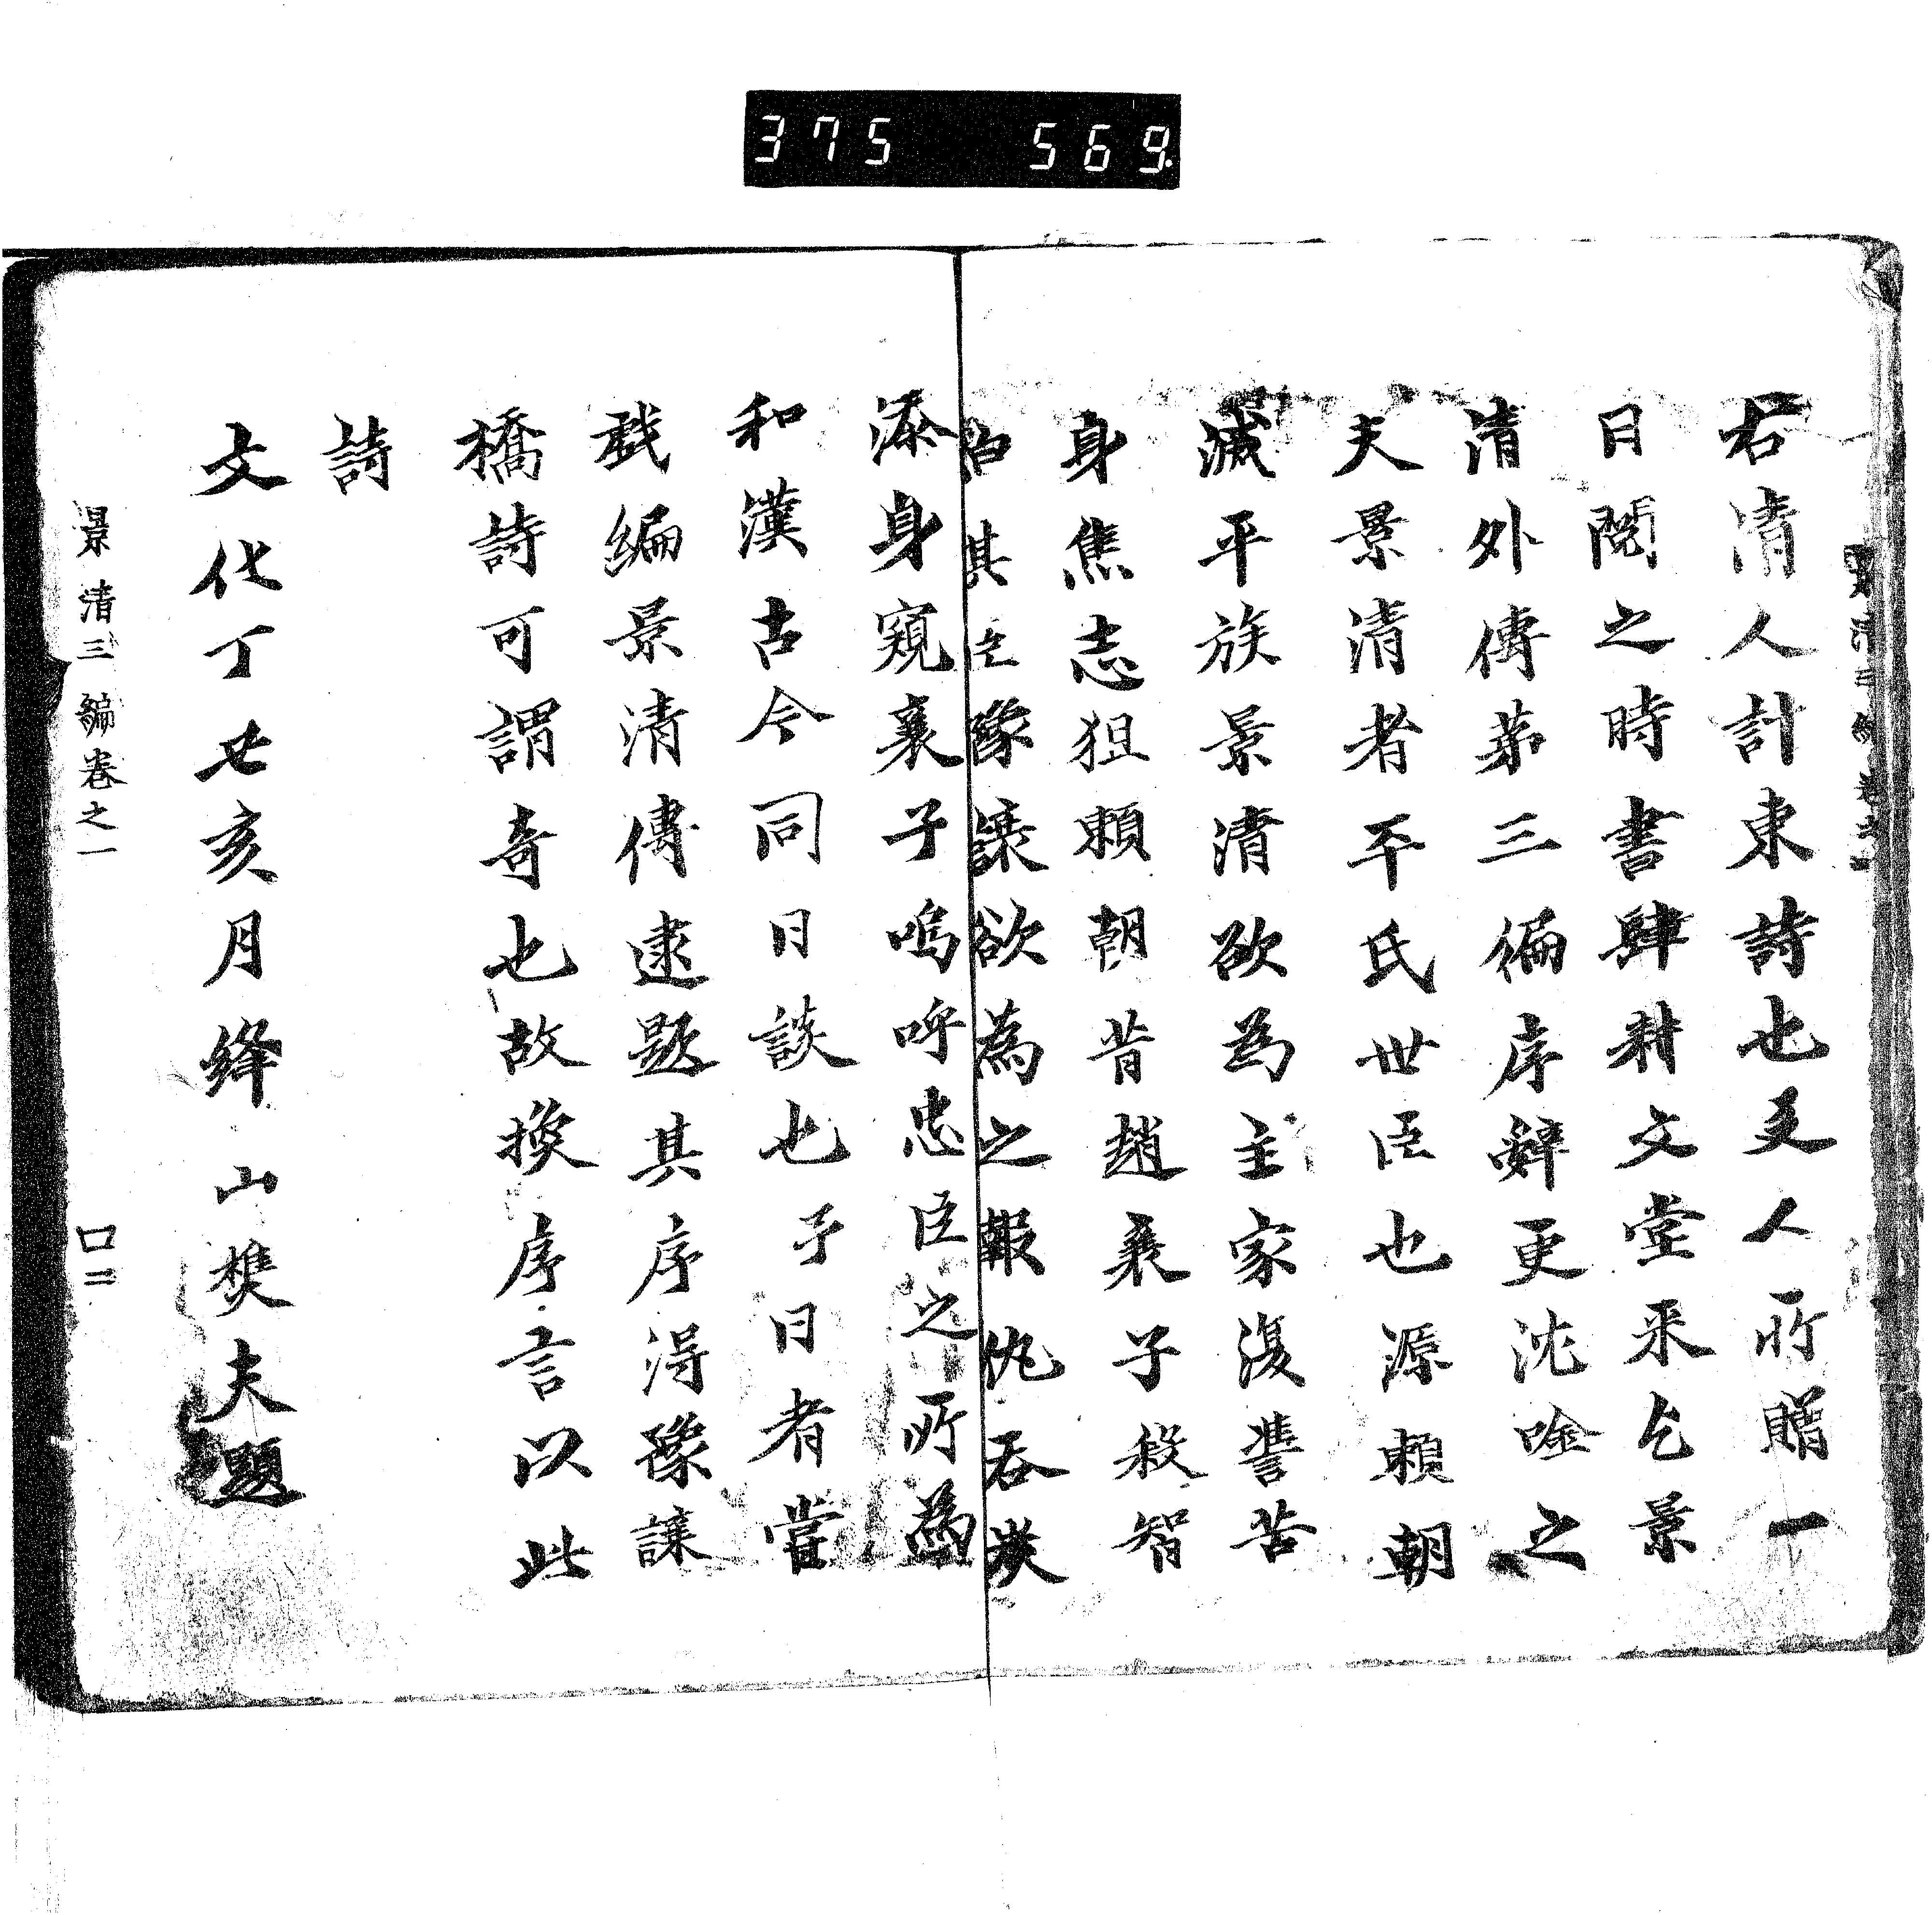 375 569
右清人計東詩也友人所贈一
日閲之時書肆耕文堂来乞景
清外傳第三編序辭更沈唫之
夫景清者平氏世臣也源頼朝
滅平族景清欲為主家復讐苦
身焦志狙頼朝昔趙襄子殺智
伯其臣豫讓欲為之報仇吞炭
漆身窺襄子嗚呼忠臣之所為
和漢古今同日談也予日者嘗
戲編景清傳逮題其序得豫讓
橋詩可謂奇也故換序言以此
詩
文化丁丑亥月絳山樵夫題
景清三編卷之一
口二